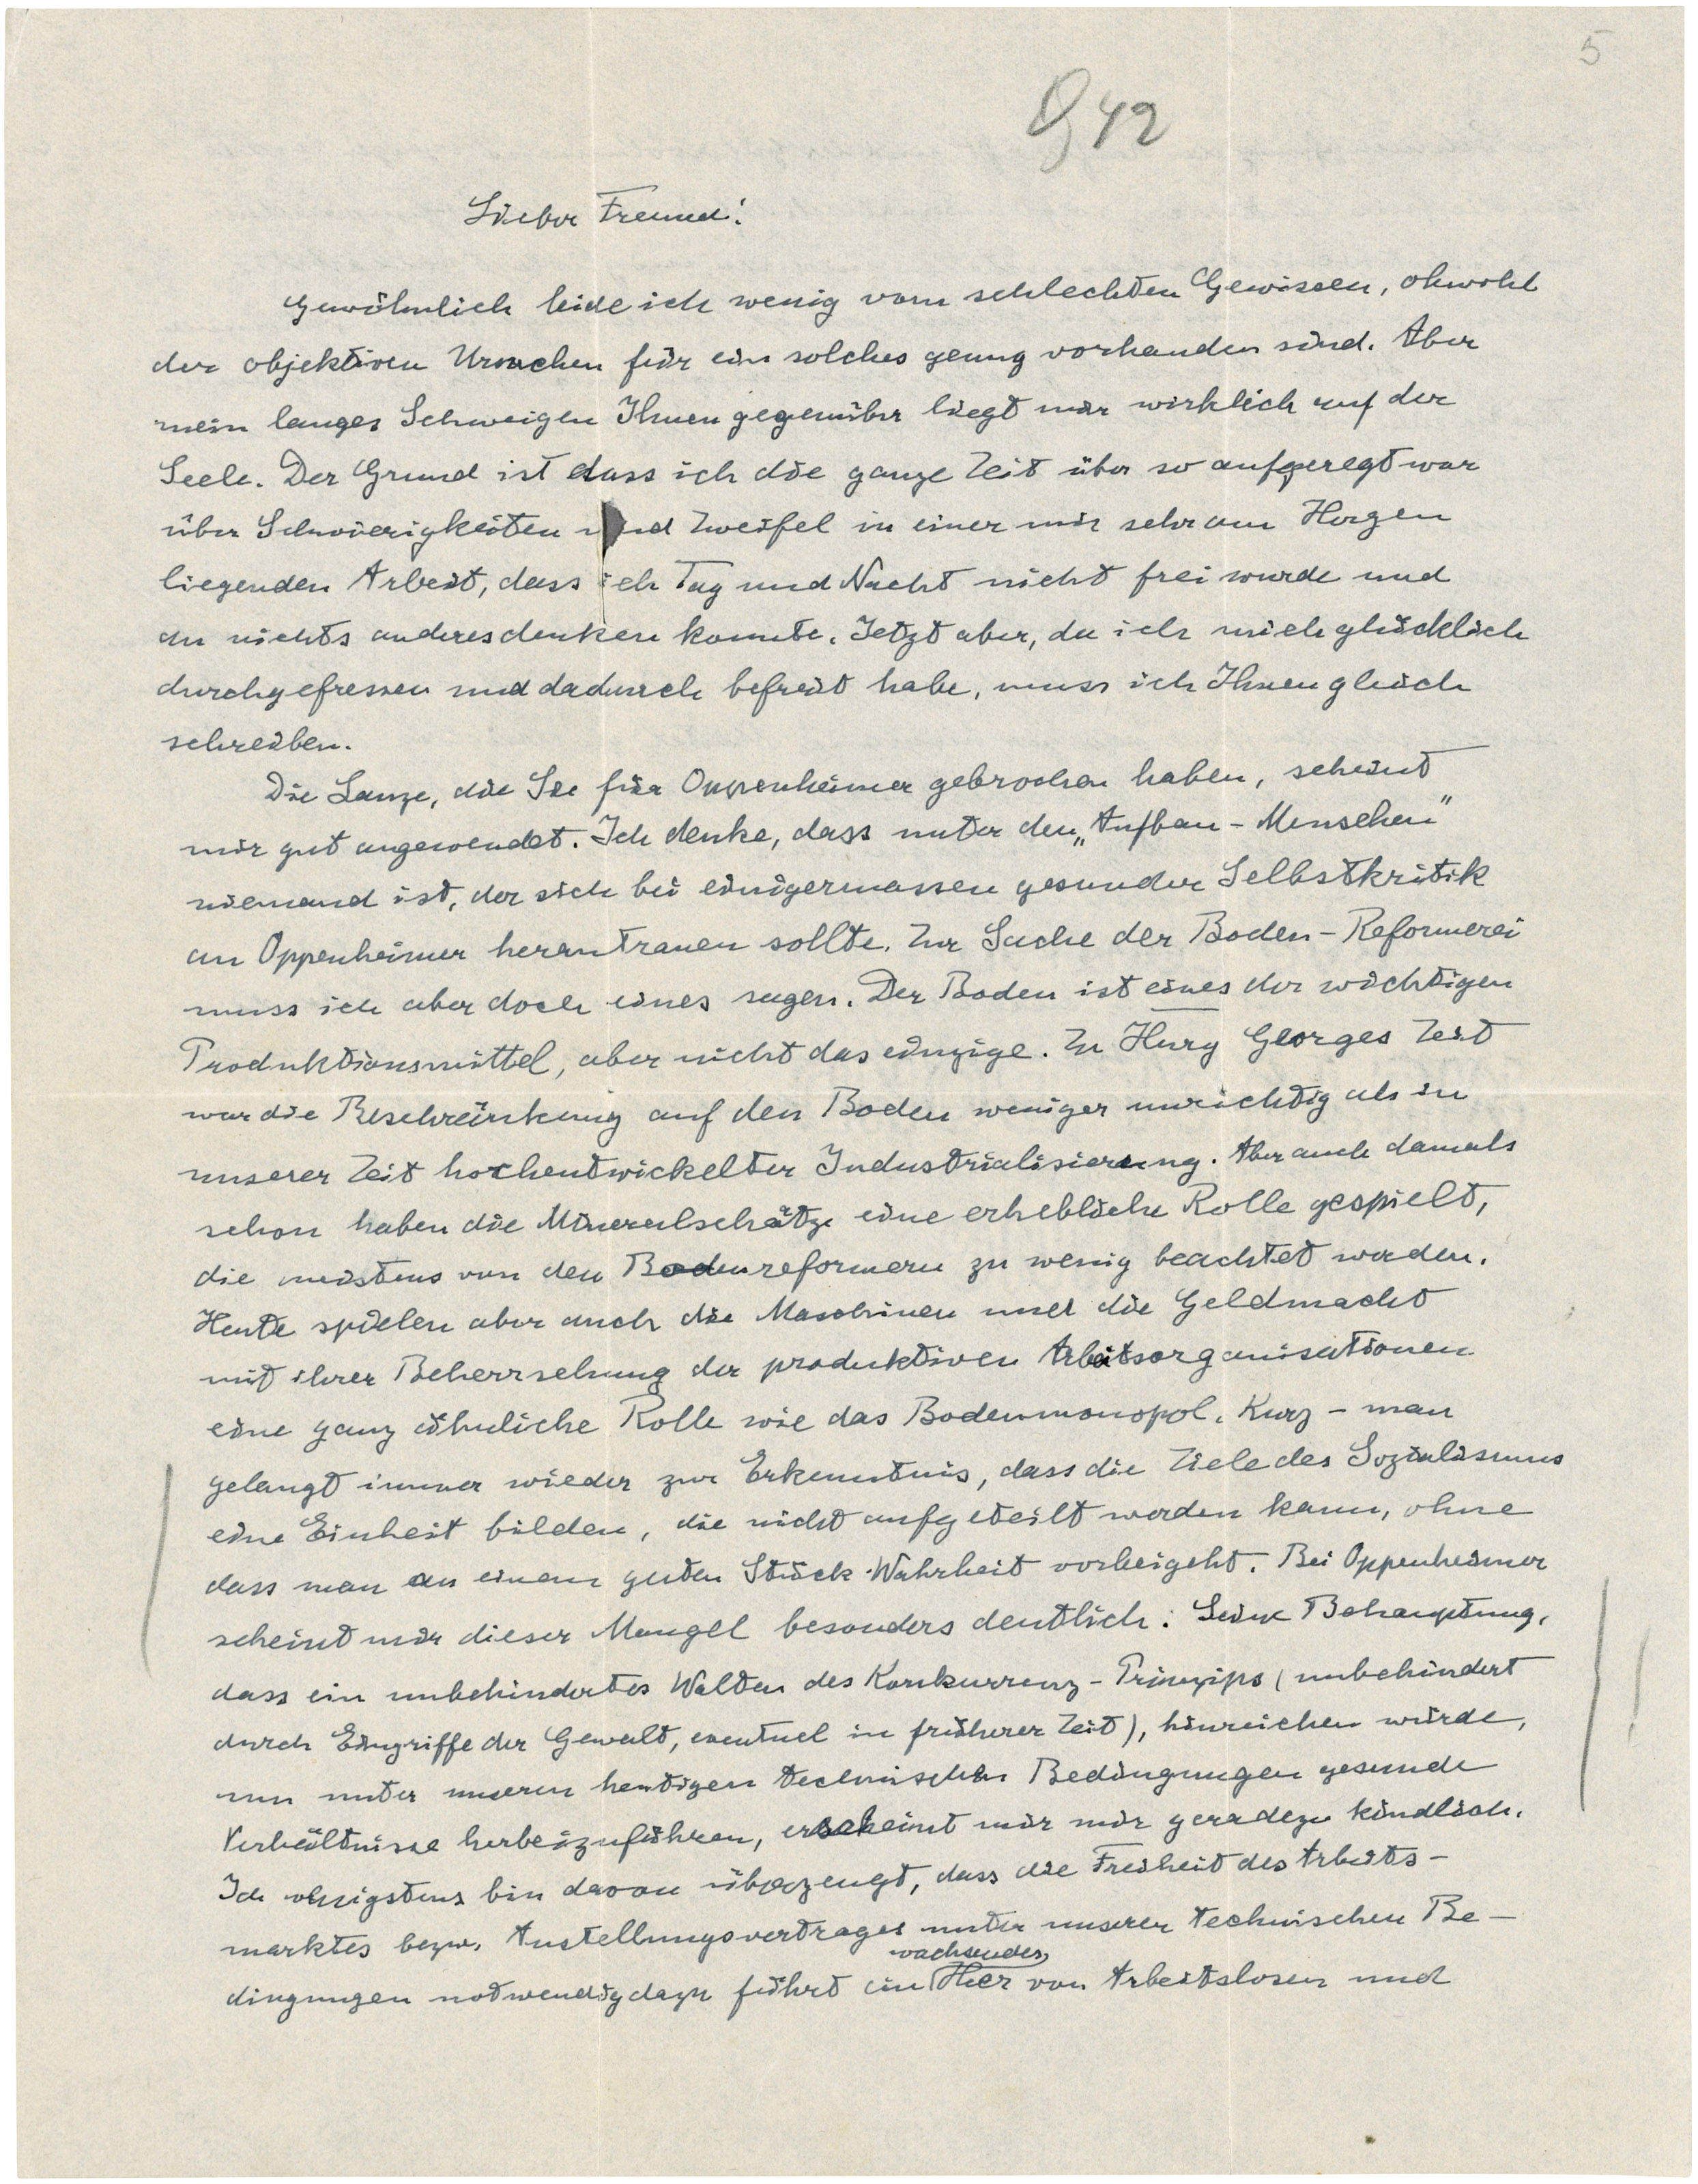 5
G 42
Lieber Freund!
Gewöhnlich leide ich wenig vom schlechten Gewissen, obwohl
der objektiven Ursachen für ein solches genug vorhanden sind. Aber
mein langes Schweigen Ihnen gegenüber liegt mir wirklich auf der
Seele. Der Grund ist dass ich die ganze Zeit über so aufgeregt war
über Schwierigkeiten und Zweifel in einer mir sehr am Herzen
liegenden Arbeit, dass ich Tag und Nacht nicht frei wurde und
an nichts anderes denken konnte. Jetzt aber, da ich mich glücklich
durchgefressen und dadurch befreit habe, muss ich Ihnen gleich
schreiben.
Die Lanze, die Sie für Oppenheimer gebrochen haben, scheint
mir gut angewendet. Ich denke, dass unter den „Aufbau-Menschen"
niemand ist, der sich bei einigermassen gesunder Selbstkritik
an Oppenheimer herantrauen sollte. Zur Sache der Boden-Reformerei
muss ich aber doch eines sagen. Der Boden ist eines der wichtigen
Produktionsmittel, aber nicht das einzige. Zu Henry Georges Zeit
war die Beschränkung auf den Boden weniger unrichtig als in
unserer Zeit hochentwickelter Industrialisierung. Aber auch damals
schon haben die Mineralschätze eine erhebliche Rolle gespielt,
die meistens von den Bodenreformern zu wenig beachtet werden.
Heute spielen aber auch die Maschinen und die Geldmacht
mit ihrer Beherrschung der produktiven Arbeitsorganisationen
eine ganz ähnliche Rolle wie das Bodenmonopol. Kurz - man
gelangt immer wieder zur Erkenntnis, dass die Ziele des Sozialismus
eine Einheit bilden, die nicht aufgeteilt werden kann, ohne
dass man an einem guten Stück Wahrheit vorbeigeht. Bei Oppenheimer
scheint mir dieser Mangel besonders deutlich: Seine Behauptung,
dass ein unbehindertes Walten des Konkurrenz-Prinzips (unbehindert
durch Eingriffe der Gewalt, eventuel in früherer Zeit), hinreichen würde,
um unter unseren heutigen technischen Bedingungen gesunde
Verhältnisse herbeizuführen, erscheint mir mir geradezu kindlich.
Ich wenigstens bin davon überzeugt, dass die Freiheit des Arbeits-
marktes bezw. Anstellungsvertrages unter unseren technischen Be-
wachsendes
dingungen notwendig dazu führt ein Heer von Arbeitslosen und